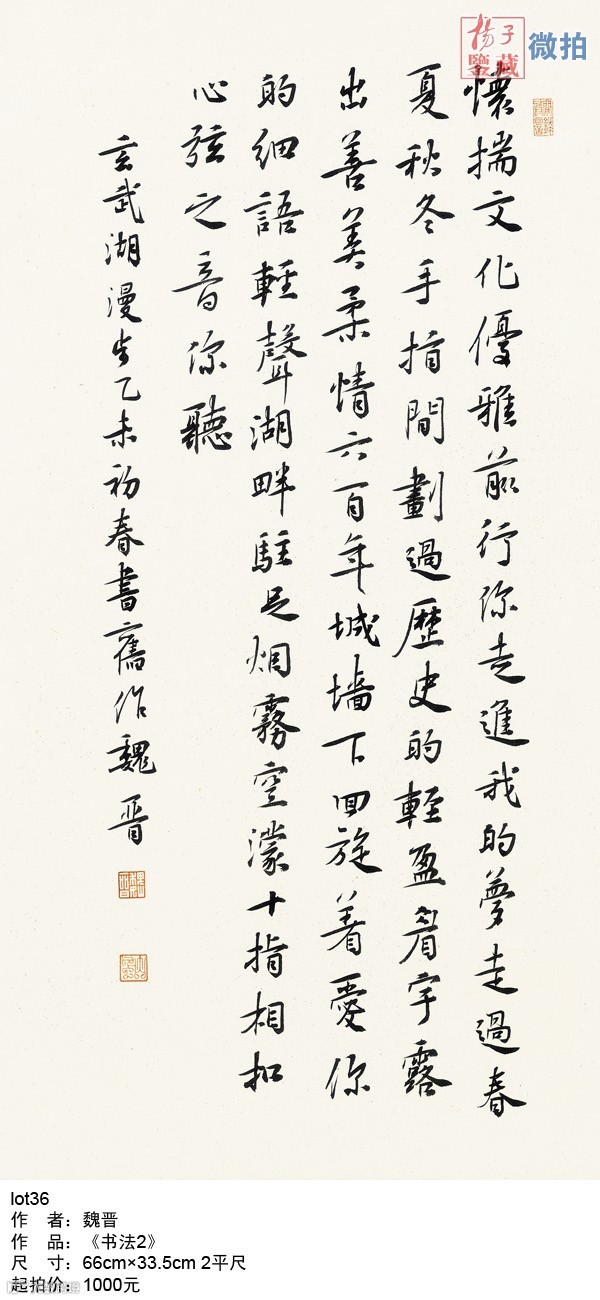 揚子
鑒藏
微拍
懷揣文化優雅前行你走進我的夢走過春
夏秋冬手指間劃過歷史的輕盈眉宇露
出善美柔情六百年城墙下回旋着愛你
的細語輕聲湖畔駐足烟霧空濛十指相扣
心弦之音你聽
玄武湖漫步乙未初春書舊作魏晋
lot36
作 者：魏晋
作 品：《书法2》
尺 寸：66cm×33.5cm 2平尺
起拍价：1000元